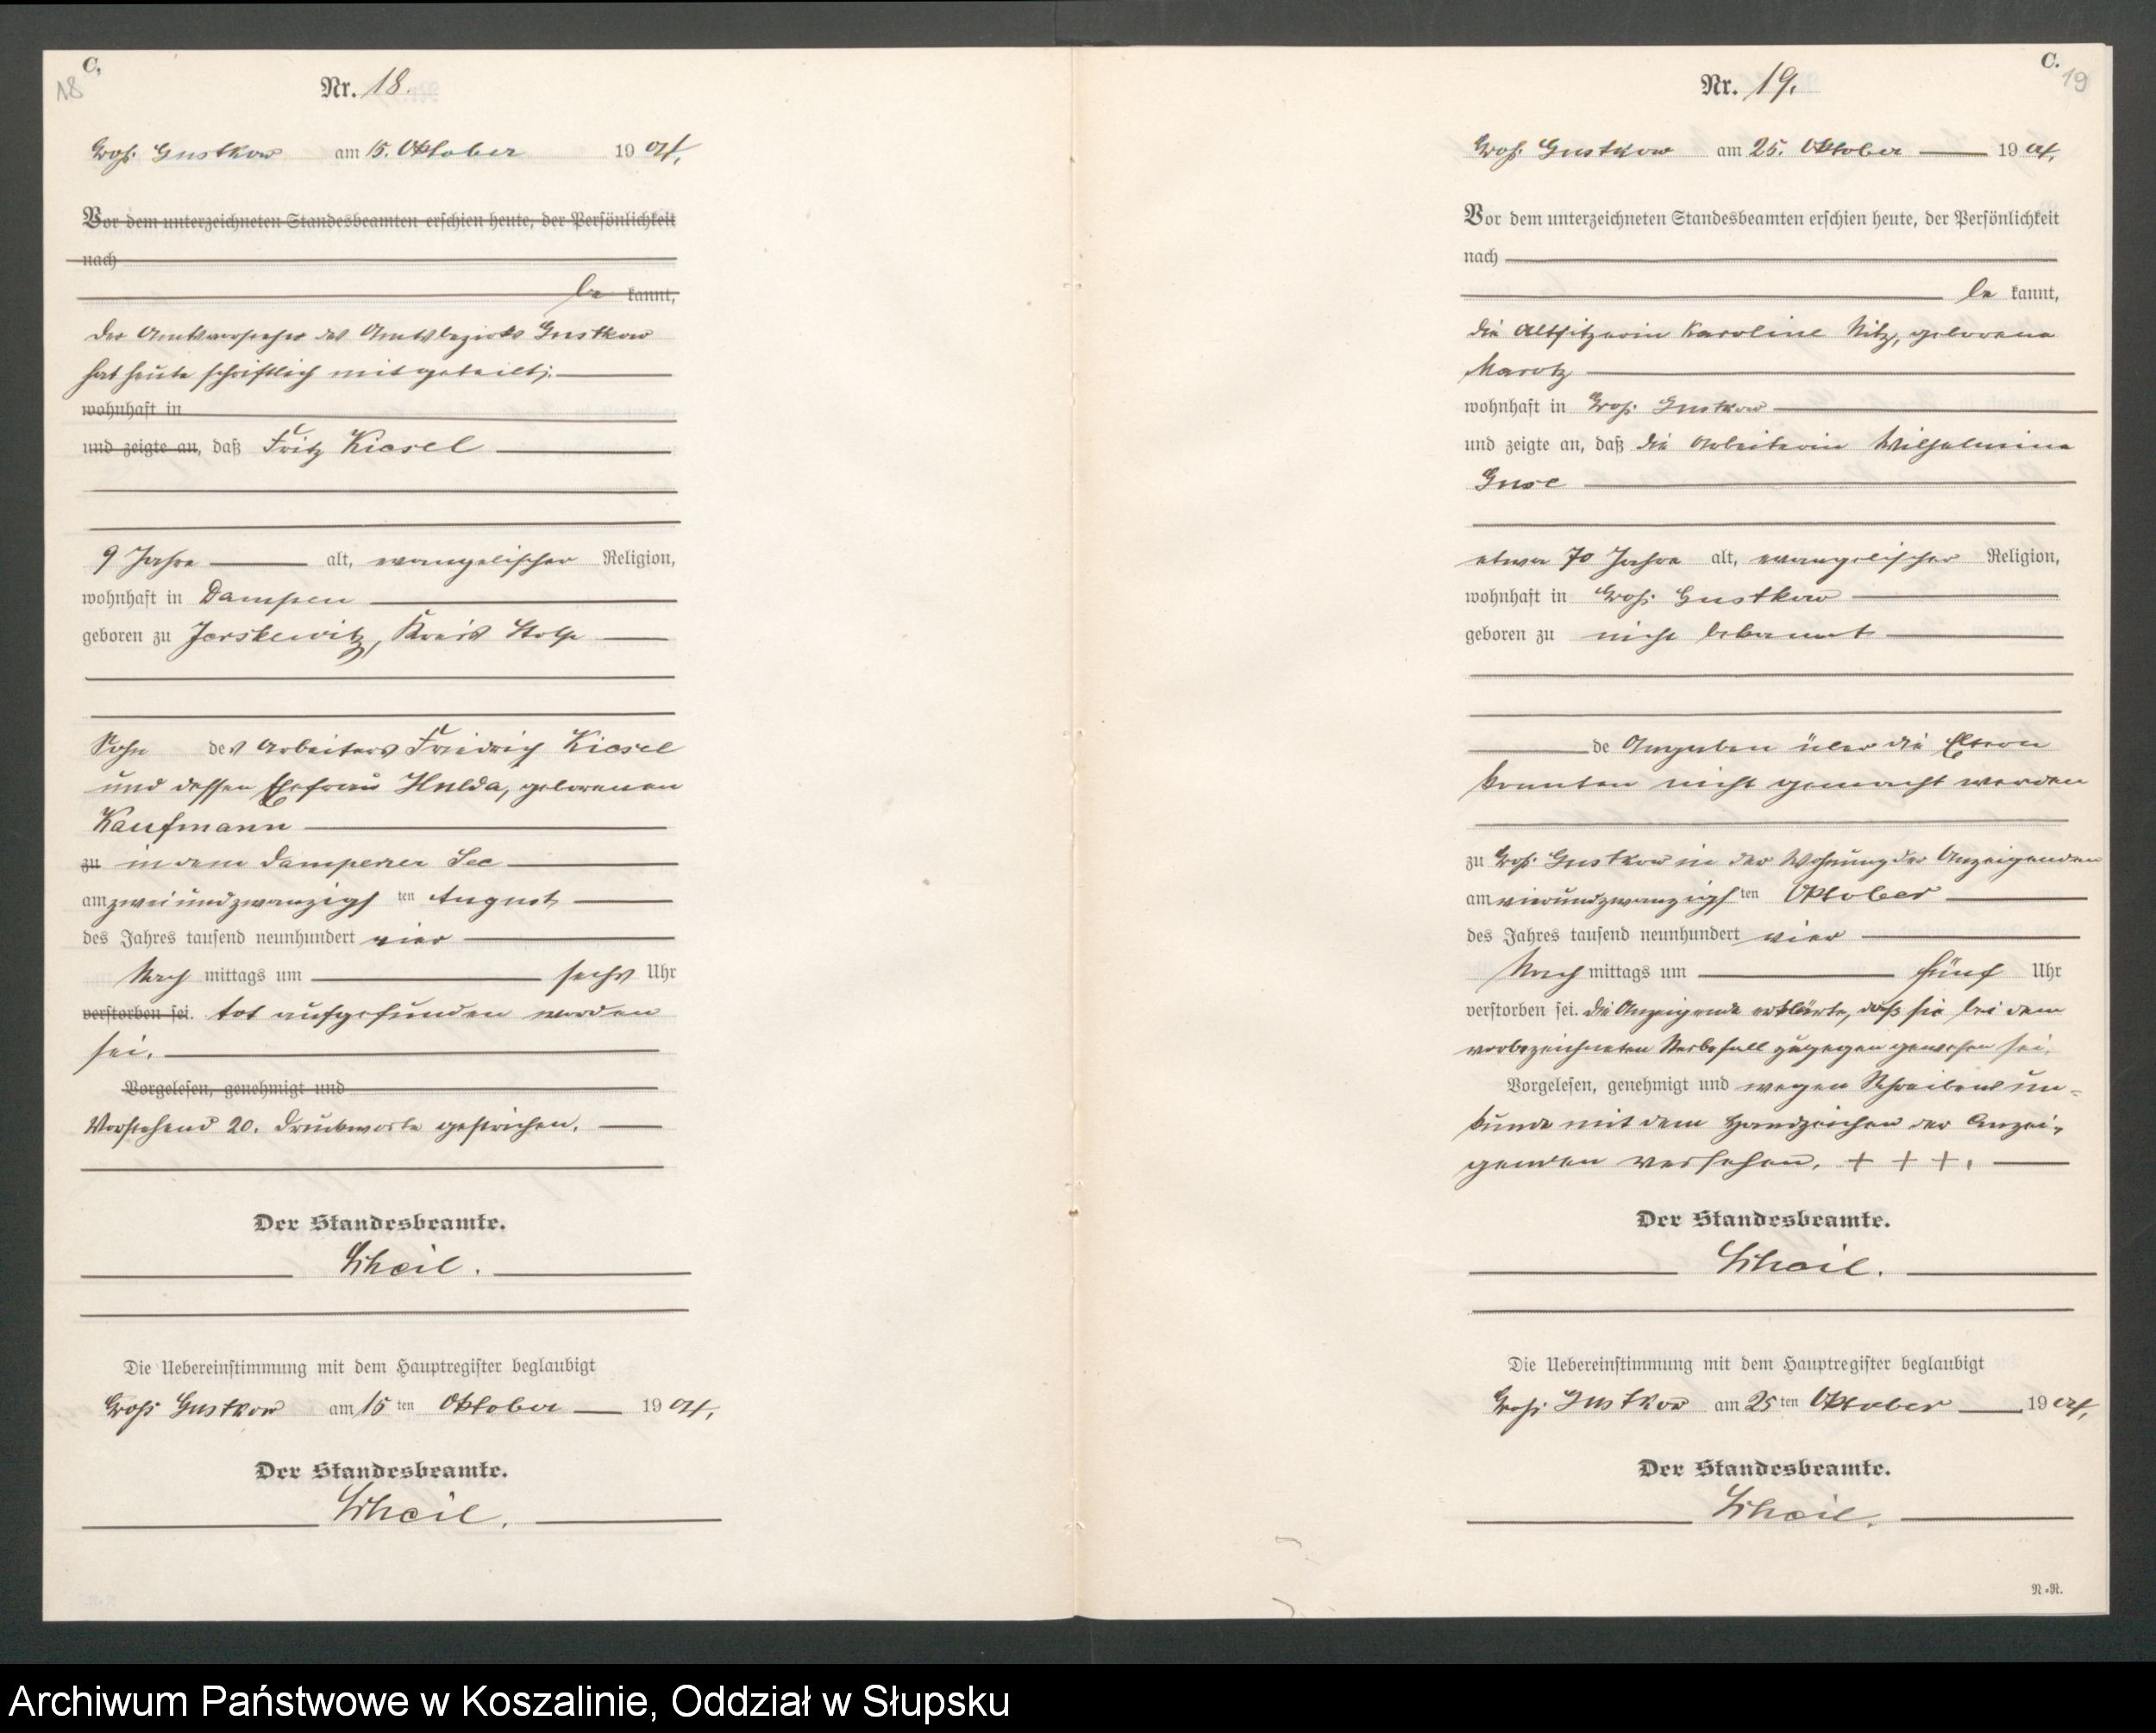 C.
18
Nr. 18.
Groß Gustkow am 15. Oktober 1904.
Vor dem unterzeichneten Standesbeamten erschien heute, der Persönlichkeit
nach
be kannt,
der Amtsvorsteher des Amtsbezirks Gustkow
hat heute schriftlich mitgeteilt,
wohnhaft in
und zeigte an, daß Fritz Kiesel
9 Jahre alt, evangelischer Religion,
wohnhaft in Dampen
geboren zu Jerskewitz, Kreis Stolp
Sohn des Arbeiters Friedrich Kiesel
und dessen Ehefrau Hulda, geborenen
Kaufmann
zu in dem Dampener See
am zweiundzwanzigs ten August
des Jahres tausend neunhundert vier
Nach mittags um sechs Uhr
verstorben sei. tot aufgefunden worden
sei.
Vorgelesen, genehmigt und
Vorstehend 20. Druckworte gestrichen.
Der Standesbeamte.
Die Uebereinstimmung mit dem Hauptregister beglaubigt
Groß Gustkow am 15 ten Oktober 1904.
Der Standesbeamte.
C.
19
Nr. 19.
Groß Gustkow am 25. Oktober 1904.
Vor dem unterzeichneten Standesbeamten erschien heute, der Persönlichkeit
nach
be kannt,
die Altsitzerin Karoline Nitz, geborene
Marotz
wohnhaft in Groß Gustkow
und zeigte an, daß die Arbeiterin Wilhelmine
Guse
etwa 70 Jahre alt, evangelischer Religion,
wohnhaft in Groß Gustkow
geboren zu nicht bekannt
de Angaben über die Eltern
konnten nicht gemacht werden
zu Groß Gustkow in der Wohnung der Anzeigenden
am vierundzwanzigs ten Oktober
des Jahres tausend neunhundert vier
Nach mittags um fünf Uhr
verstorben sei. Die Anzeigende erklärte, daß sie bei dem
vorbezeichneten Sterbefall zugegen gewesen sei.
Vorgelesen, genehmigt und wegen Schreibensun-
kunde mit dem Handzeichen der Anzei-
genden versehen. + + +.
Der Standesbeamte.
Die Uebereinstimmung mit dem Hauptregister beglaubigt
Groß Gustkow am 25 ten Oktober 1904.
Der Standesbeamte.
N.-N.
Archiwum Państwowe w Koszalinie, Oddział w Słupsku